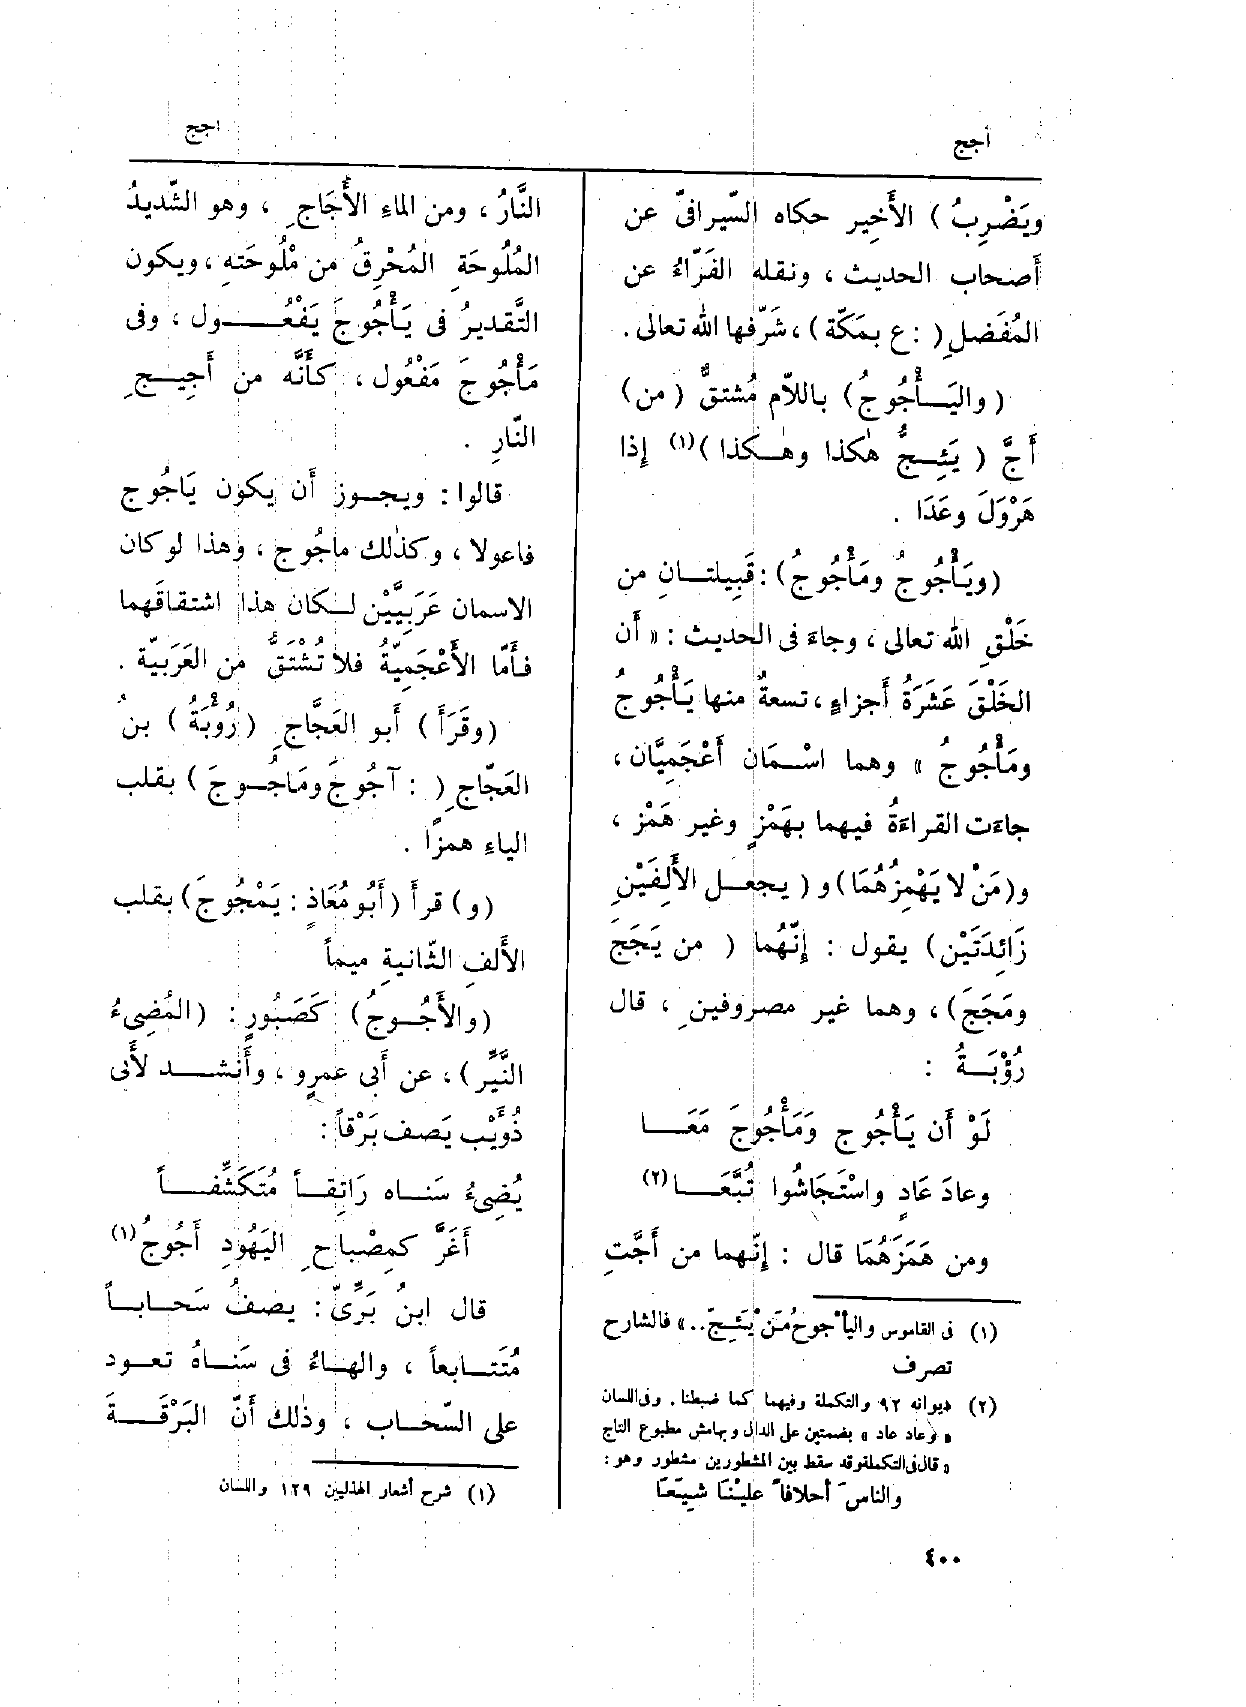 أجج
اجج
ويَضْرِبُ) الأَخِير حكاه السّيرافىّ عن
أصحاب الحديث ، ونقله الفَرّاءُ عن
المُفَضلِ( : ع بمَكّة)، شرّفها الله تعالى .
(واليَأْجُوجُ) باللاّم مُشتقٌّ (من)
أَجَّ ( يَئِجُّ هٰكذا وهٰكذا )(١) إذا
هَرْوَلَ وعَدَا .
(ويَأْجُوجُ ومَأْجُوجُ) : قَبِيلتانِ من
خَلْقِ الله تعالى ، وجاءَ فى الحديث : « أَن
الخَلْقَ عَشَرَةُ أَجزاءٍ ، تسعةٌ منها يَأْجُوجُ
ومَأْجُوجُ » وهما اسْمان أَعْجَمِيَّان ،
جاءَت القراءَةُ فيهما بهَمْزٍ وغير هَمْز ،
و(مَنْ لا يَهْمِزُهُمَا) و ( يجعل الأَلِفَيْنِ
زَائِدَتَيْن) يقول : إنّهُما ( من يَجَجَ
ومَجَجَ) ، وهما غير مصروفين ، قال
رُؤْبَةُ :
لَوْ أَن يَأْجُوج وَمَأْجُوجَ مَعَا
وعادَ عَادٍ واسْتَجَاشُوا تُبَّعَا (٢)
ومن هَمَزَهُمَا قال : إنّهما من أَجَّتِ
(١) فى القاموس واليأْجوجُ مَنْ يَئِجّ .. » فالشارح
تصرف
(٢) ديوانه ٩٢ والتكملة وفيهما كما ضبطنا . وفى اللسان
« وعاد عاد » بضمتين على الدال وبهامش مطبوع التاج
« قال فى التكملة وقد سقط بين المشطورين مشطور وهو :
والناسَ أحلافاً علينْا شِيَعَا
النَّارُ ، ومن الماءِ الأُجَاجِ ، وهو الشّديدُ
المُلُوحَةِ المُحْرِقُ من مْلُوحَتِهِ ، ويكون
التَّقديرُ فى يَأْجُوجَ يَفْعُول ، وفى
مَأْجُوجَ مَفْعُول ، كأَنَّه من أَجِيجِ
النّارِ .
قالوا : ويجوز أَن يكون يَاجُوج
فاعولا ، وكذٰلك ماجُوج ، وهذا لو كان
الاسمان عَرَبِيَّيْن لكان هذا اشتقاقَهما
فأَمّا الأَعْجَمِيّةُ فلا تُشْتَقُّ من العَرَبيّة .
(وقَرَأَ) أَبو العَجّاجِ (رُؤْبَةُ) بنُ
العَجّاجِ ( : آجُوجَ ومَاجُوجَ ) بقلب
الياءِ همزًا .
(و) قرأَ (أَبُو مُعَاذٍ : يَمْجُوجَ) بقلب
الأَلفِ الثّانيةِ ميماً
(والأَجُوجُ) كَصَبُورٍ : (المُضِىءُ
النَّيِّر) ، عن أَبى عمرٍو ، وأَنشد لأَبى
ذُؤَيْب يَصف بَرْقاً :
يُضِىءُ سَناه رَاتِقاً مُتَكَشِّفاً
أَغَرَّ كمِصْباحِ اليَهُودِ أَجُوجُ(١)
قال ابنُ بَرِّىّ : يصفُ سَحاباً
مُتَتابعاً ، والهاءُ فى سَناهُ تعود
على السّحاب ، وذٰلك أَنّ البَرْقَةَ
(١) شرح أشعار الهذليين ١٢٩ واللسان
٤٠٠